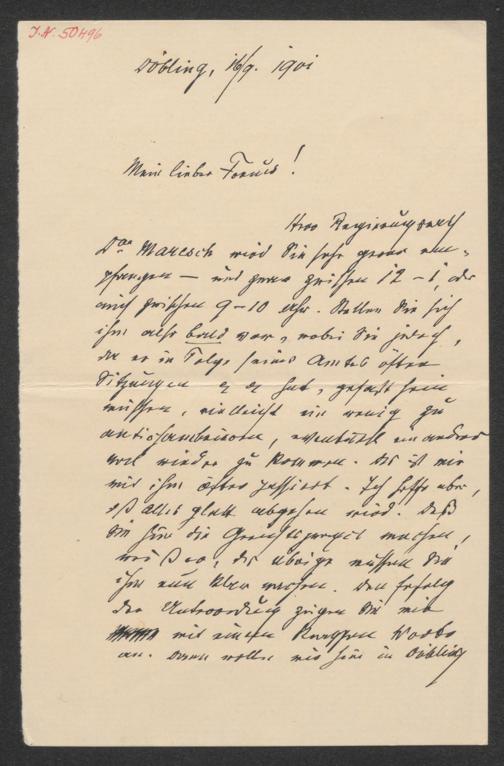 J.N. 50496
Döbling, 16/9. 1901
Mein lieber Freund!
Herr Regierungsrath
Dor Maresch wird Sie sehr gerne em-
pfangen — und zwar zwischen 12–1, oder
auch zwischen 9–10 Uhr. Stellen Sie sich
ihm also bald vor, wobei Sie jedoch,
da er in Folge seines Amtes öfter
Sitzungen hat, gefasst sein
müssen, vielleicht ein wenig zu
antichambriren, eventuell ein anderes
mal wieder zu kommen. Es ist mir
mit ihm öfter passiert. Ich hoffe aber,
daß alles glatt abgehen wird. Daß
Sie für die machen,
weiß er, das übrige müssen Sie
ihm nun klar machen. Den Erfolg
der Unterredung zeigen Sie mir
mit einem kurzen Worte
an. Dann wollen wir hier in Döbling